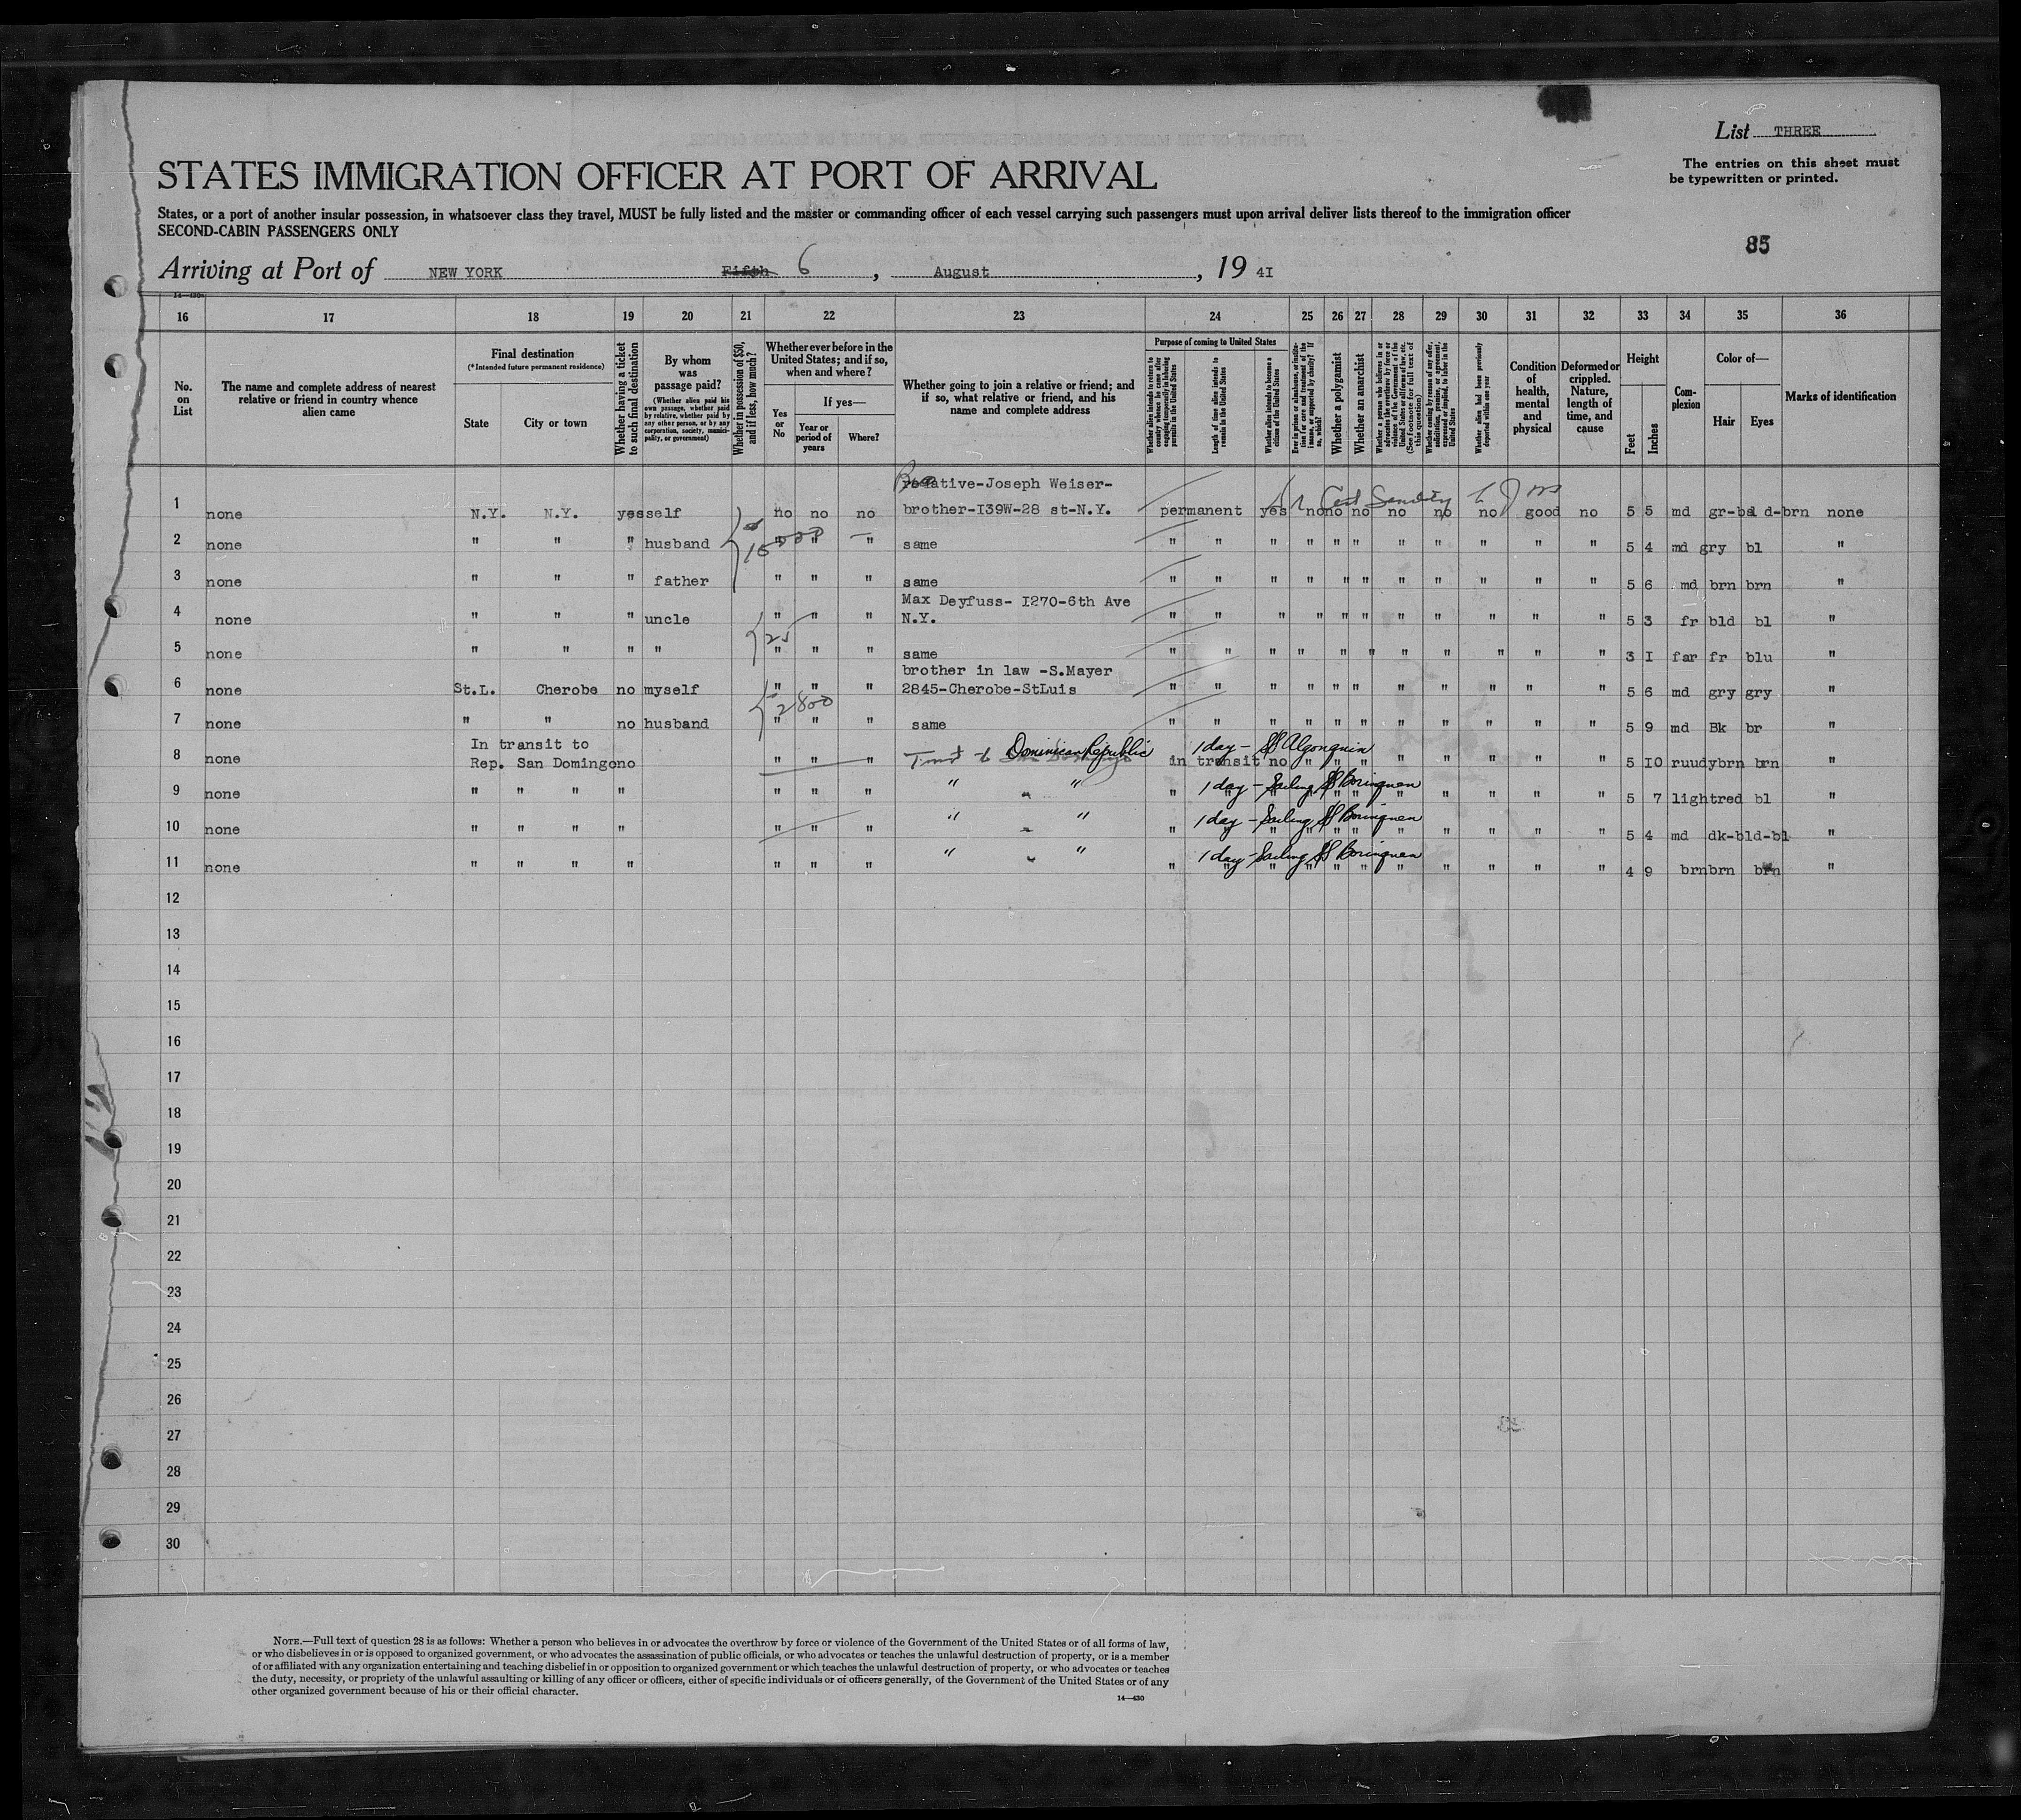 List THREE
The entries on this sheet must
be typewritten or printed.
STATES IMMIGRATION OFFICER AT PORT OF ARRIVAL
States, or a port of another insular possession, in whatsoever class they travel, MUST be fully listed and the master or commanding officer of each vessel carrying such passengers must upon arrival deliver lists thereof to the immigration officer
SECOND-CABIN PASSENGERS ONLY
85
Arriving at Port of NEW YORK Fifth 6, August, 19 4I
14-430
16 17 18 19 20 21 22 23 24 25 26 27 28 29 30 31 32 33 34 35 36
No. on List
The name and complete address of nearest relative or friend in country whence alien came
Final destination
(*Intended future permanent residence)
State
City or town
Whether having a ticket to such final destination
By whom was passage paid?
(Whether alien paid his own passage, whether paid by relative, whether paid by any other person, or by any corporation, society, municipality, or government)
Whether in possession of $50, and if less, how much?
Whether ever before in the United States; and if so, when and where?
Yes or No
If yes—
Year or period of years
Where?
Whether going to join a relative or friend; and if so, what relative or friend, and his name and complete address
Purpose of coming to United States
Whether alien intends to return to country whence he came after engaging temporarily in laboring pursuits in the United States
Length of time alien intends to remain in the United States
Whether alien intends to become a citizen of the United States
Ever in prison or almshouse, or institution for care and treatment of the insane, or supported by charity? If so, which?
Whether a polygamist
Whether an anarchist
Whether a person who believes in or advocates the overthrow by force or violence of the Government of the United States or all forms of law, etc. (See footnote for full text of this question)
Whether coming by reason of any offer, solicitation, promise, or agreement, expressed or implied, to labor in the United States
Whether alien had been previously deported within one year
Condition of health, mental and physical
Deformed or crippled. Nature, length of time, and cause
Height
Feet
Inches
Complexion
Color of—
Hair
Eyes
Marks of identification
relative-Joseph Weiser-
1 none N.Y. N.Y. yes self no no no brother-I39W-28 st-N.Y. permanent yes no no no no no no good no 5 5 md gr-bd d-brn none
2 none " " " husband 15000 " " " same " " " " " " " " " " " 5 4 md gry bl "
3 none " " " father " " " same " " " " " " " " " " " 5 6 md brn brn "
Max Deyfuss- I270-6th Ave
4 none " " " uncle " " " N.Y. " " " " " " " " " " " 5 3 fr bld bl "
25
5 none " " " " " " " same " " " " " " " " " " " 3 I far fr blu "
brother in law -S.Mayer
6 none St.L. Cherobe no myself " " " 2845-Cherobe-StLuis " " " " " " " " " " " 5 6 md gry gry "
2800
7 none " " no husband " " " same " " " " " " " " " " " 5 9 md Bk br "
In transit to Dominican Republic 1 day - SS Algonquin
8 none Rep. San Domingo no " " " in transit no " " " " " " " " 5 IO ruudy brn brn "
1 day - Sailing SS Borinquen
9 none " " " " " " " " " " " " " " " " " " " 5 7 light red bl "
1 day - Sailing SS Borinquen
10 none " " " " " " " " " " " " " " " " " " 5 4 md dk-bld-bl "
1 day - Sailing SS Borinquen
11 none " " " " " " " " " " " " " " " " " " " 4 9 brn brn brn "
12
13
14
15
16
17
18
19
20
21
22
23
24
25
26
27
28
29
30
NOTE.—Full text of question 28 is as follows: Whether a person who believes in or advocates the overthrow by force or violence of the Government of the United States or of all forms of law,
or who disbelieves in or is opposed to organized government, or who advocates the assassination of public officials, or who advocates or teaches the unlawful destruction of property, or is a member
of or affiliated with any organization entertaining and teaching disbelief in or opposition to organized government or which teaches the unlawful destruction of property, or who advocates or teaches
the duty, necessity, or propriety of the unlawful assaulting or killing of any officer or officers, either of specific individuals or of officers generally, of the Government of the United States or of any
other organized government because of his or their official character.
14—430